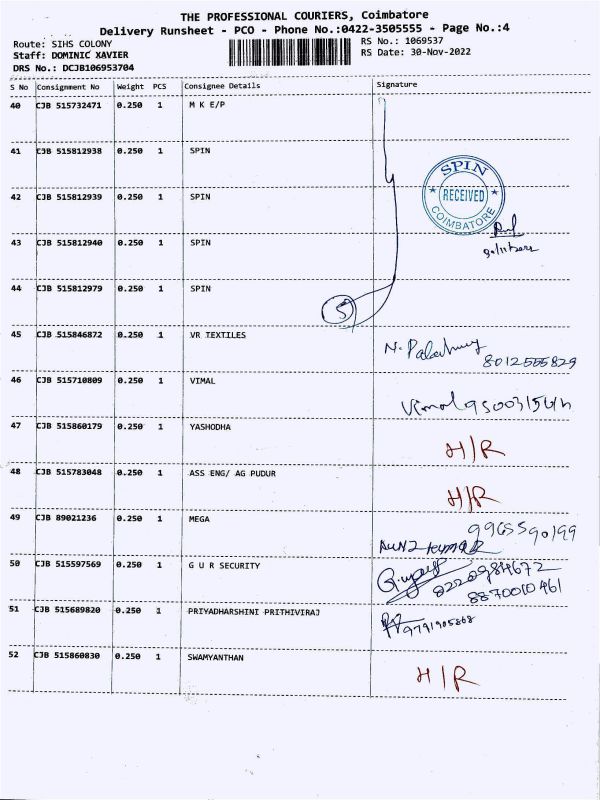 THE PROFESSIONAL COURIERS, Coimbatore
Delivery Runsheet - PCO - Phone No.:0422-3505555 - Page No.:4
Route: SIHS COLONY
RS No.: 1069537
Staff: DOMINIC XAVIER
RS Date: 30-Nov-2022
DRS No.: DCJB106953704
S No Consignment No Weight PCS Consignee Details Signature
40 CJB 515732471 0.250 1 M K E/P
41 CJB 515812938 0.250 1 SPIN
SPIN
RECEIVED
COIMBATORE
42 CJB 515812939 0.250 1 SPIN
43 CJB 515812940 0.250 1 SPIN
44 CJB 515812979 0.250 1 SPIN
5
45 CJB 515846872 0.250 1 VR TEXTILES
8012555829
46 CJB 515710809 0.250 1 VIMAL
Vimal
47 CJB 515860179 0.250 1 YASHODHA
H/R
48 CJB 515783048 0.250 1 ASS ENG/ AG PUDUR
H/R
49 CJB 89021236 0.250 1 MEGA
9965590199
50 CJB 515597569 0.250 1 G U R SECURITY
8870010461
51 CJB 515689820 0.250 1 PRIYADHARSHINI PRITHIVIRAJ
9791905868
52 CJB 515860830 0.250 1 SWAMYANTHAN
H/R